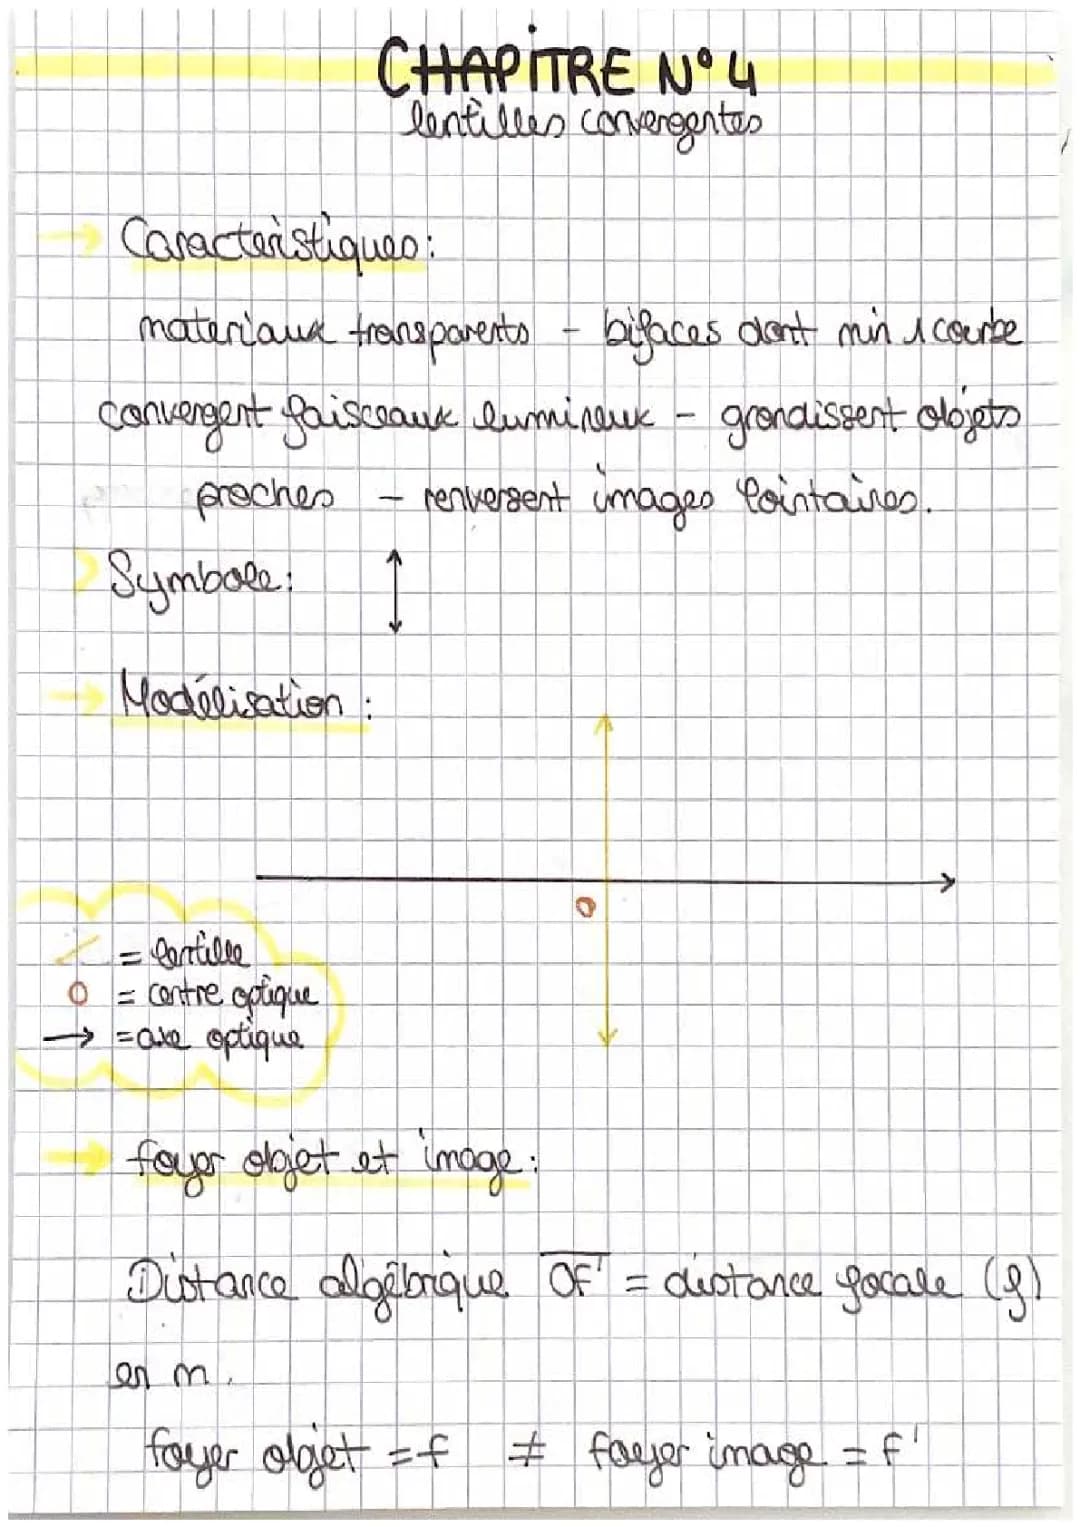 CHAPITRE N° 4
lentilles convergentes
Caracteristiques:
materiaux transparents - bifaces dont min 1 courbe
convergent faisceaux lumineux - grandissent objets
proches - renversent images lointaires.
Symbole:
Modélisation :
O
= lentille
O = centre optique
→ = axe optique
foyer objet et image:
Distance algébrique OF' = distance focale (f)
en m.
foyer objet = F ≠ foyer image = F'